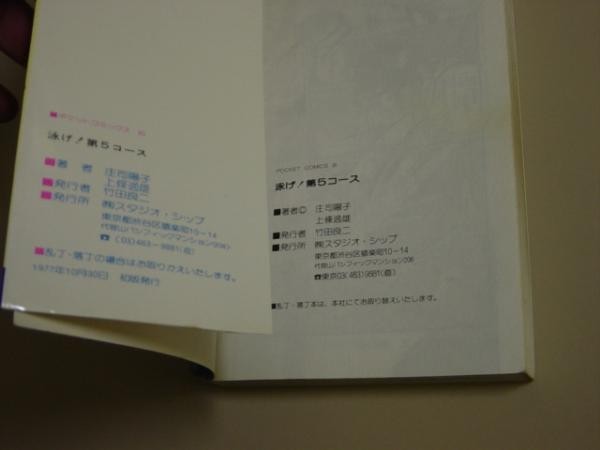 ■ポケットコミックス 16
泳げ!第5コース
■著 者 庄司陽子
上條逸雄
■発行者 竹田良二
■発行所 ㈱スタジオ・シップ
東京都渋谷区猿楽町10-14
代官山パシフィックマンション206
☎(03)463-9881(直)
■乱丁・落丁の場合はお取りかえいたします。
1977年10月30日 初版発行
POCKET COMICS
泳げ!第5コース
■著者© 庄司陽子
上條逸雄
■発行者 竹田良二
■発行所 ㈱スタジオ・シップ
東京都渋谷区猿楽町10-14
代官山パシフィックマンション206
☎東京03(463)9881(直)
■乱丁・落丁本は、本社にてお取り替えいたします。